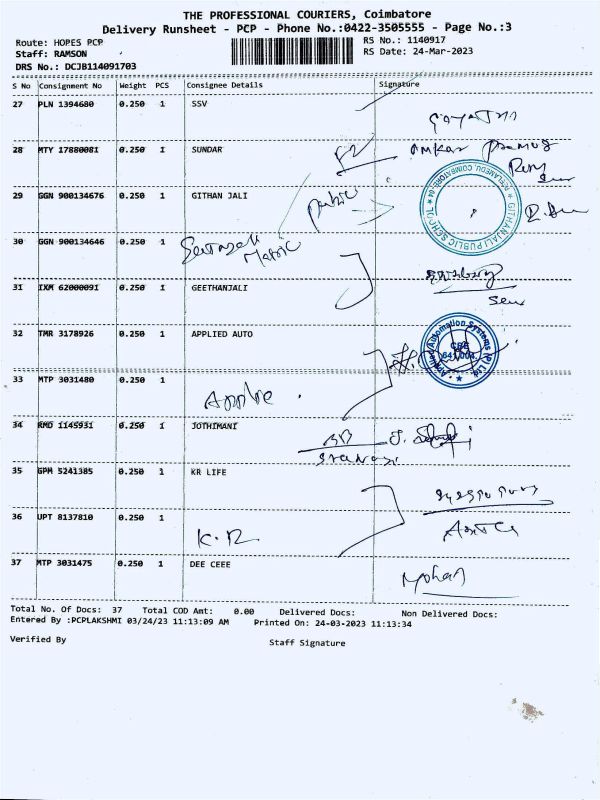 THE PROFESSIONAL COURIERS, Coimbatore
Delivery Runsheet - PCP - Phone No.:0422-3505555 - Page No.:3
Route: HOPES PCP
RS No.: 1140917
Staff: RAMSON
RS Date: 24-Mar-2023
DRS No.: DCJB114091703
S No Consignment No Weight PCS Consignee Details Signature
27 PLN 1394680 0.250 1 SSV
28 MTY 17880081 0.250 1 SUNDAR
29 GGN 900134676 0.250 1 GITHAN JALI
public
GITHANJALI PUBLIC SCHOOL ★ PEELAMEDU, COIMBATORE-04 ★
30 GGN 900134646 0.250 1
Matric
31 IXM 62000091 0.250 1 GEETHANJALI
32 TMR 3178926 0.250 1 APPLIED AUTO
Applied Automation Systems (P) Ltd. ★
CBE
641 004
33 MTP 3031480 0.250 1
34 KMD 1145931 0.250 1 JOTHIMANI
35 GPM 5241385 0.250 1 KR LIFE
36 UPT 8137810 0.250 1
K.R
37 MTP 3031475 0.250 1 DEE CEEE
Mohan
Total No. Of Docs: 37 Total COD Amt: 0.00 Delivered Docs: Non Delivered Docs:
Entered By :PCPLAKSHMI 03/24/23 11:13:09 AM Printed On: 24-03-2023 11:13:34
Verified By
Staff Signature